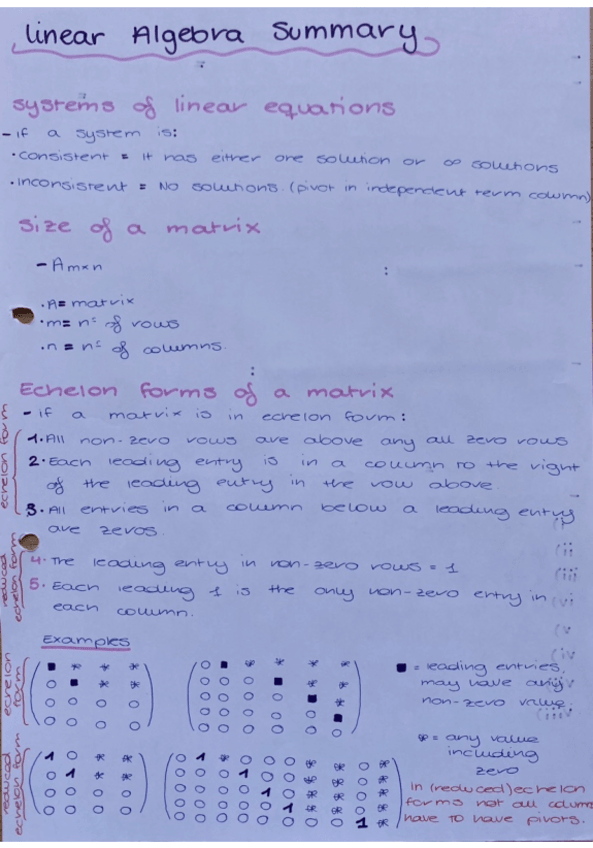 linear Algebra Summary
systems of linear equations
- if a system is:
· consistent = it has either one solution or ∞ solutions
· inconsistent = No solutions. (pivot in independent term column)
Size of a matrix
- Am×n
· A = matrix
· m = nº of rows
· n = nº of columns.
Echelon forms of a matrix
- if a matrix is in echelon form:
echelon form
1. All non-zero rows are above any all zero rows
2. Each leading entry is in a column to the right
of the leading entry in the row above
3. All entries in a column below a leading entry
are zeros.
reduced
echelon form
4. The leading entry in non-zero rows = 1
5. Each leading 1 is the only non-zero entry in
each column.
Examples
echelon
form
■ * * *
0 ■ * *
0 0 0 0
0 0 0 0
0 ■ * * * *
0 0 0 ■ * *
0 0 0 0 ■ *
0 0 0 0 0 ■
0 0 0 0 0 0
■ = leading entries,
may have any
non-zero value.
* = any value
including
zero
reduced
echelon form
1 0 * *
0 1 * *
0 0 0 0
0 0 0 0
0 1 * 0 0 0 * * 0 *
0 0 0 1 0 0 * * 0 *
0 0 0 0 1 0 * * 0 *
0 0 0 0 0 1 * * 0 *
0 0 0 0 0 0 0 0 1 *
In (reduced) echelon
forms not all column
have to have pivots.